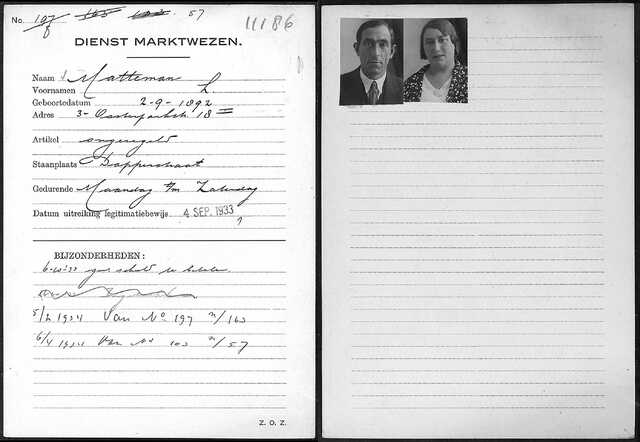 No. 197 165 103 57
8
11186
DIENST MARKTWEZEN.
Naam Matteman
Voornamen L.
Geboortedatum 2-9-1892
Adres 3- Oosterparkstr. 18
Artikel ongeregeld
Staanplaats Dapperstraat
Gedurende Maandag t/m Zaterdag
Datum uitreiking legitimatiebewijs 4 SEP. 1933
BIJZONDERHEDEN:
6-10-33 geen schuld te betalen
5/2 1934 Van No 197 n/163
6/4 1934 Van No 103 n/57
Z. O. Z.